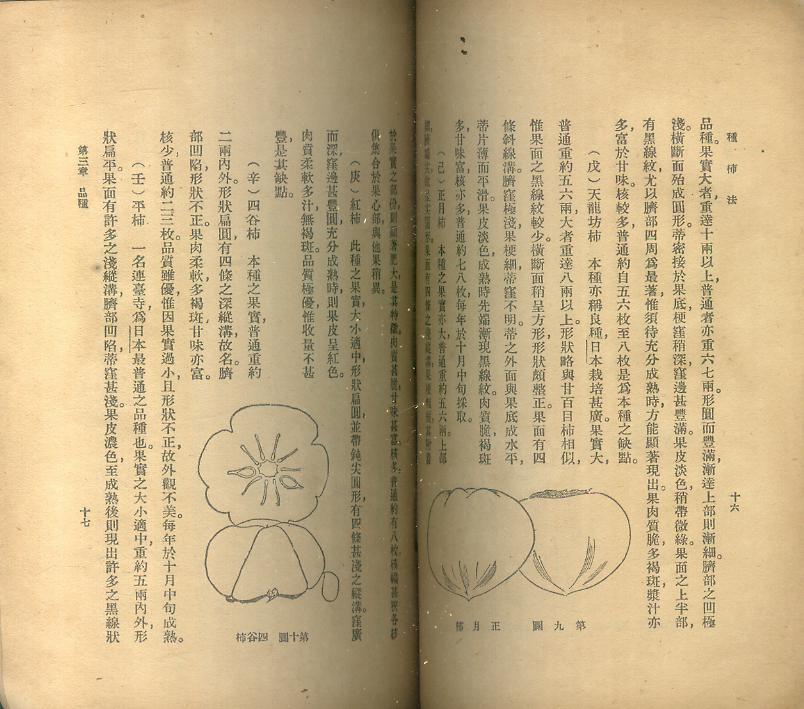 種柿法
十六
品種。果實大者，重達十兩以上，普通者亦重六七兩。形圓而豐滿，漸達上部則漸細。臍部之凹極
淺。橫斷面殆成圓形。蒂密接於果底，梗窪稍深，窪邊甚豐滿。果皮淡色，稍帶微綠。果面之上半部，
有黑線紋，尤以臍部四周爲最著，惟須待充分成熟時，方能顯著現出。果肉質脆，多褐斑，漿汁亦
多，富於甘味。核較多，普通約自五六枚至八枚，是爲本種之缺點。
（戊）天龍坊柿　本種亦稱良種，日本栽培甚廣。果實大，
普通重約五六兩，大者重達八兩以上。形狀略與廿百目柿相似，
惟果面之黑線紋較少。橫斷面稍呈方形，形狀頗整正。果面有四
條斜線溝。臍窪極淺，果梗細，蒂窪不明。蒂之外面與果底成水平，
蒂片薄而平滑。果皮淡色，成熟時先端漸現黑線紋。肉質脆，褐斑
多，甘味富，核亦多，普通約七八枚，每年於十月中旬採取。
（己）正月柿　本種之果實亦大，普通重約五六兩，上部
第九圖　正月柿
（庚）紅柿　此種之果實，大小適中，形狀扁圓，並帶鈍尖圓形，有四條甚淺之縱溝。窪廣
而深，窪邊甚豐圓，充分成熟時，則果皮呈紅色。
肉質柔軟多汁，無褐斑。品質極優，惟收量不甚
豐，是其缺點。
（辛）四谷柿　本種之果實，普通重約
二兩內外。形狀扁圓，有四條之深縱溝，故名。臍
部凹陷，形狀不正。果肉柔軟，多褐斑，甘味亦富。
核少，普通約二三枚。品質雖優，惟因果實過小，且形狀不正，故外觀不美。每年於十月中旬成熟。
（壬）平柿　一名連臺寺，爲日本最普通之品種也。果實之大小適中，重約五兩內外，形
狀扁平。果面有許多之淺縱溝，臍部凹陷，蒂窪甚淺。果皮濃色，至成熟後則現出許多之黑線狀
第十圖　四谷柿
第三章　品種
十七